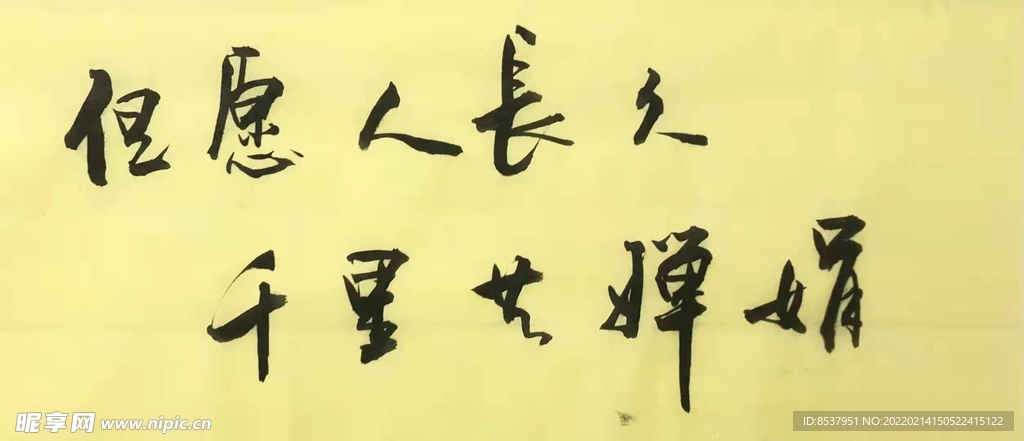 但愿人長久
千里共嬋娟
昵享网 www.nipic.cn
ID:8537951 NO:20220214150522415122